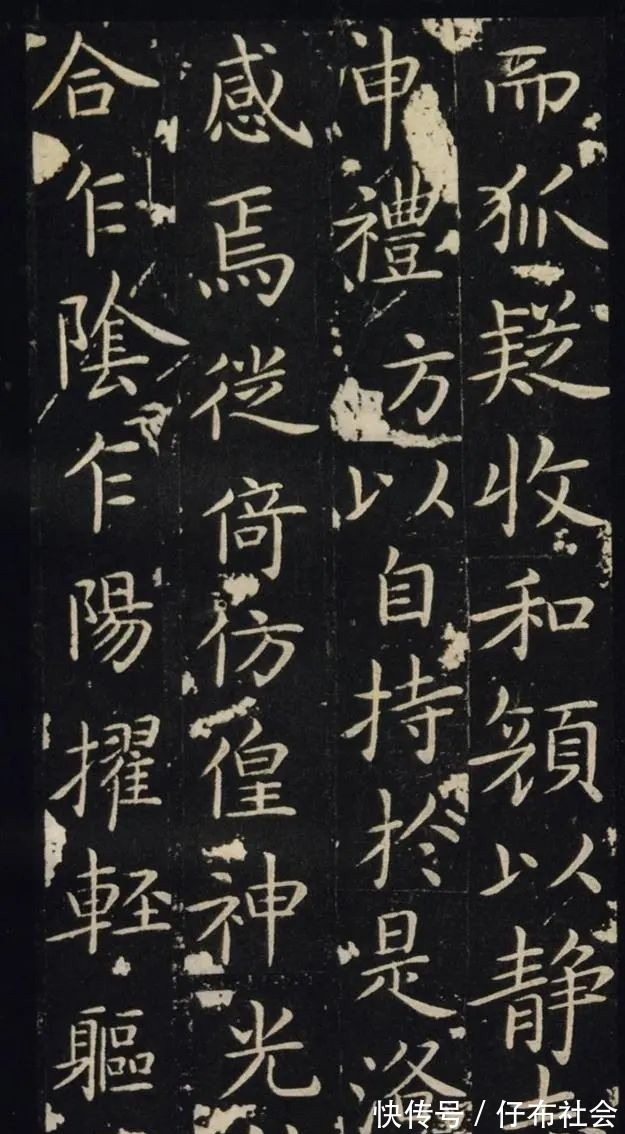 而狐疑收和顏以静
申禮方以自持於是洛
感焉徙倚彷偟神光
合乍陰乍陽擢輕軀
快传号 / 仔布社会